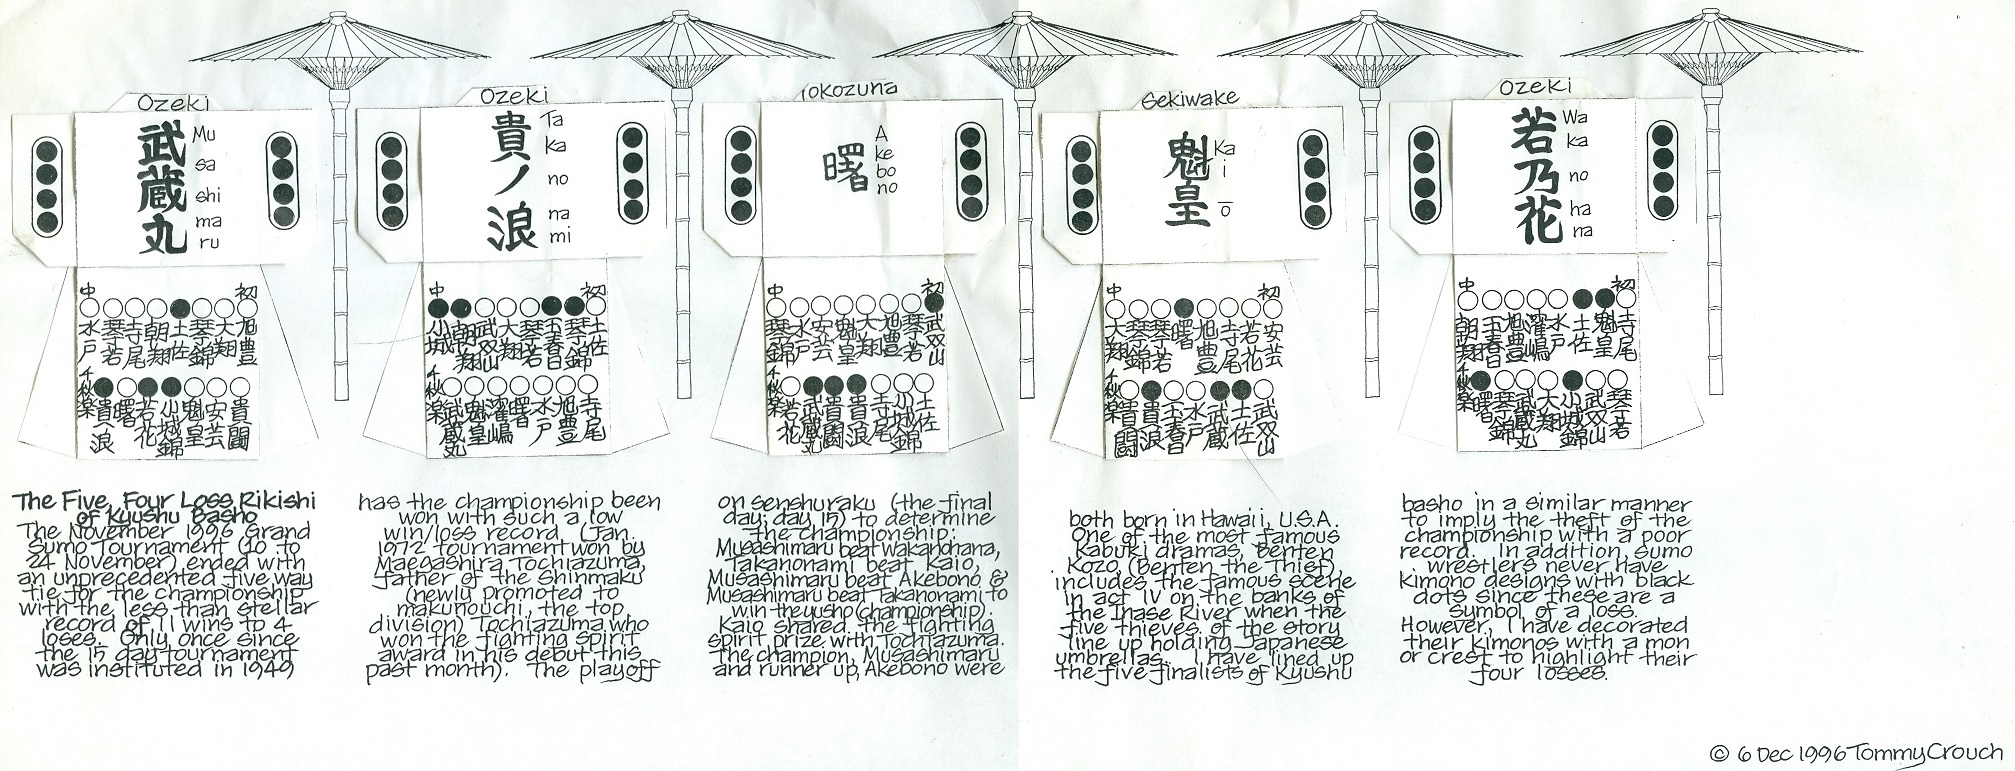 Ozeki
武蔵丸
Mu
sa
shi
ma
ru
中 初
水戸 琴若 寺尾 朝翔 土佐 琴錦 大翔 旭豊
千秋楽
貴ノ浪 曙 若花 小城錦 魁皇 安芸 貴闘
Ozeki
貴ノ浪
Ta
ka
no
na
mi
中 初
小城 朝翔 武双山 大翔 琴若 玉春日 琴錦 土佐
千秋楽
武蔵丸 魁皇 濱嶋 曙 水戸 旭豊 寺尾
Yokozuna
曙
A
ke
bo
no
中 初
琴錦 水戸 安芸 魁皇 大翔 旭豊 琴若 武双山
千秋楽
若花 武蔵丸 貴闘 貴浪 寺尾 小城錦 土佐
Sekiwake
魁皇
Ka
i
ō
中 初
大翔 琴錦 琴若 曙 旭豊 寺尾 若花 安芸
千秋楽
貴闘 貴浪 玉春日 水戸 武蔵 土佐 武双山
Ozeki
若乃花
Wa
ka
no
ha
na
中 初
朝翔 玉春日 旭豊 濱嶋 水戸 土佐 魁皇 寺尾
千秋楽
曙 琴錦 武蔵丸 大翔 小城錦 武双山 琴若
The Five, Four Loss Rikishi
of Kyushu Basho
The November 1996 Grand
Sumo Tournament (10 to
24 November) ended with
an unprecedented five way
tie for the championship
with the less than stellar
record of 11 wins to 4
loses. Only once since
the 15 day tournament
was instituted in 1949
has the championship been
won with such a low
win/loss record (Jan.
1972 tournament won by
Maegashira Tochiazuma,
father of the Shinmaku
(newly promoted to
makunouchi, the top
division) Tochiazuma, who
won the fighting spirit
award in his debut this
past month). The playoff
on senshuraku (the final
day; day 15) to determine
the championship:
Musashimaru beat Wakanohana,
Takanonami beat Kaio,
Musashimaru beat Akebono &
Musashimaru beat Takanonami to
win the yusho (championship).
Kaio shared the fighting
spirit prize with Tochiazuma.
The champion, Musashimaru
and runner up, Akebono were
both born in Hawaii, U.S.A.
One of the most famous
Kabuki dramas, Benten
Kozo, (Benten the Thief),
includes the famous scene
in act IV on the banks of
the Inase River when the
five thieves of the story
line up holding Japanese
umbrellas. I have lined up
the five finalists of Kyushu
basho in a similar manner
to imply the theft of the
championship with a poor
record. In addition, sumo
wrestlers never have
kimono designs with black
dots since these are a
symbol of a loss.
However, I have decorated
their kimonos with a mon
or crest to highlight their
four losses.
© 6 Dec 1996 Tommy Crouch